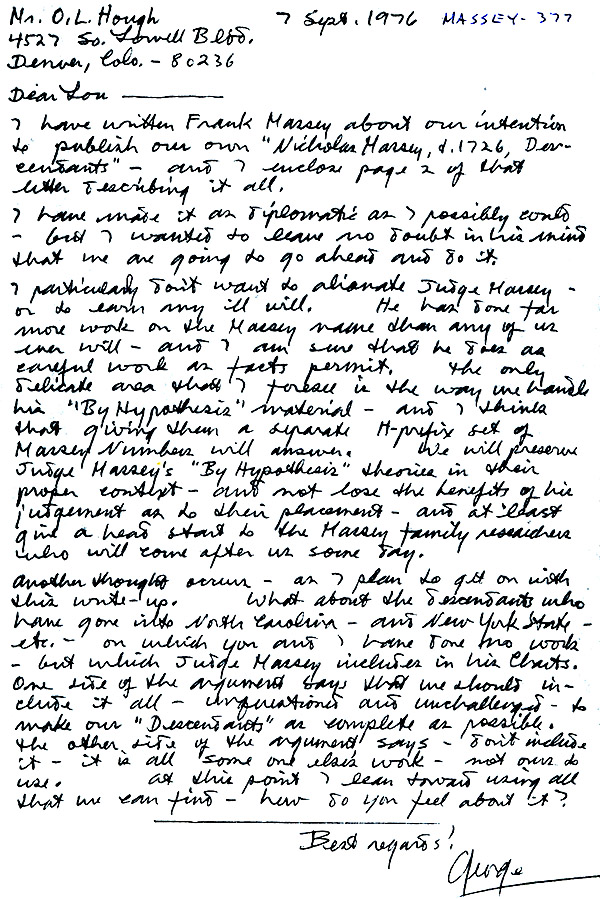 Mr. O.L. Hough 7 Sept. 1976 MASSEY-377
4527 So. Lowell Blvd.
Denver, Colo. - 80236
Dear Lou
I have written Frank Massey about our intention
to publish our own "Nicholas Massey, d.1726, Des-
cendants" - and I enclose page 2 of that
letter describing it all.
I have made it as diplomatic as I possibly could
- but I wanted to leave no doubt in his mind
that we are going to go ahead and do it.
I particularly don't want to alianate Judge Massey -
or to earn any ill will. He has done far
more work on the Massey name than any of us
ever will - and I am sure that he does as
careful work as facts permit. The only
delicate area that I foresee is the way we handle
his "By Hypothesis" material - and I think
that giving them a separate H-prefix set of
Massey Numbers will answer. We will preserve
Judge Massey's "By Hypothesis" theories in their
proper context - and not lose the benefits of his
judgement as to their placement - and at least
give a head start to the Massey family researchers
who will come after us some day.
Another thought occurs - as I plan to get on with
this write-up. What about the descendants who
have gone into North Carolina - and New York State -
etc. - on which you and I have done no work
- but which Judge Massey includes in his Charts.
One side of the argument says that we should in-
clude it all - unquestioned and unchallenged - to
make our "Descendants" as complete as possible.
The other side of the argument says - don't include
it - it is all some one else's work - not ours to
use. At this point I lean toward using all
that we can find - how do you feel about it?
Best regards!
George